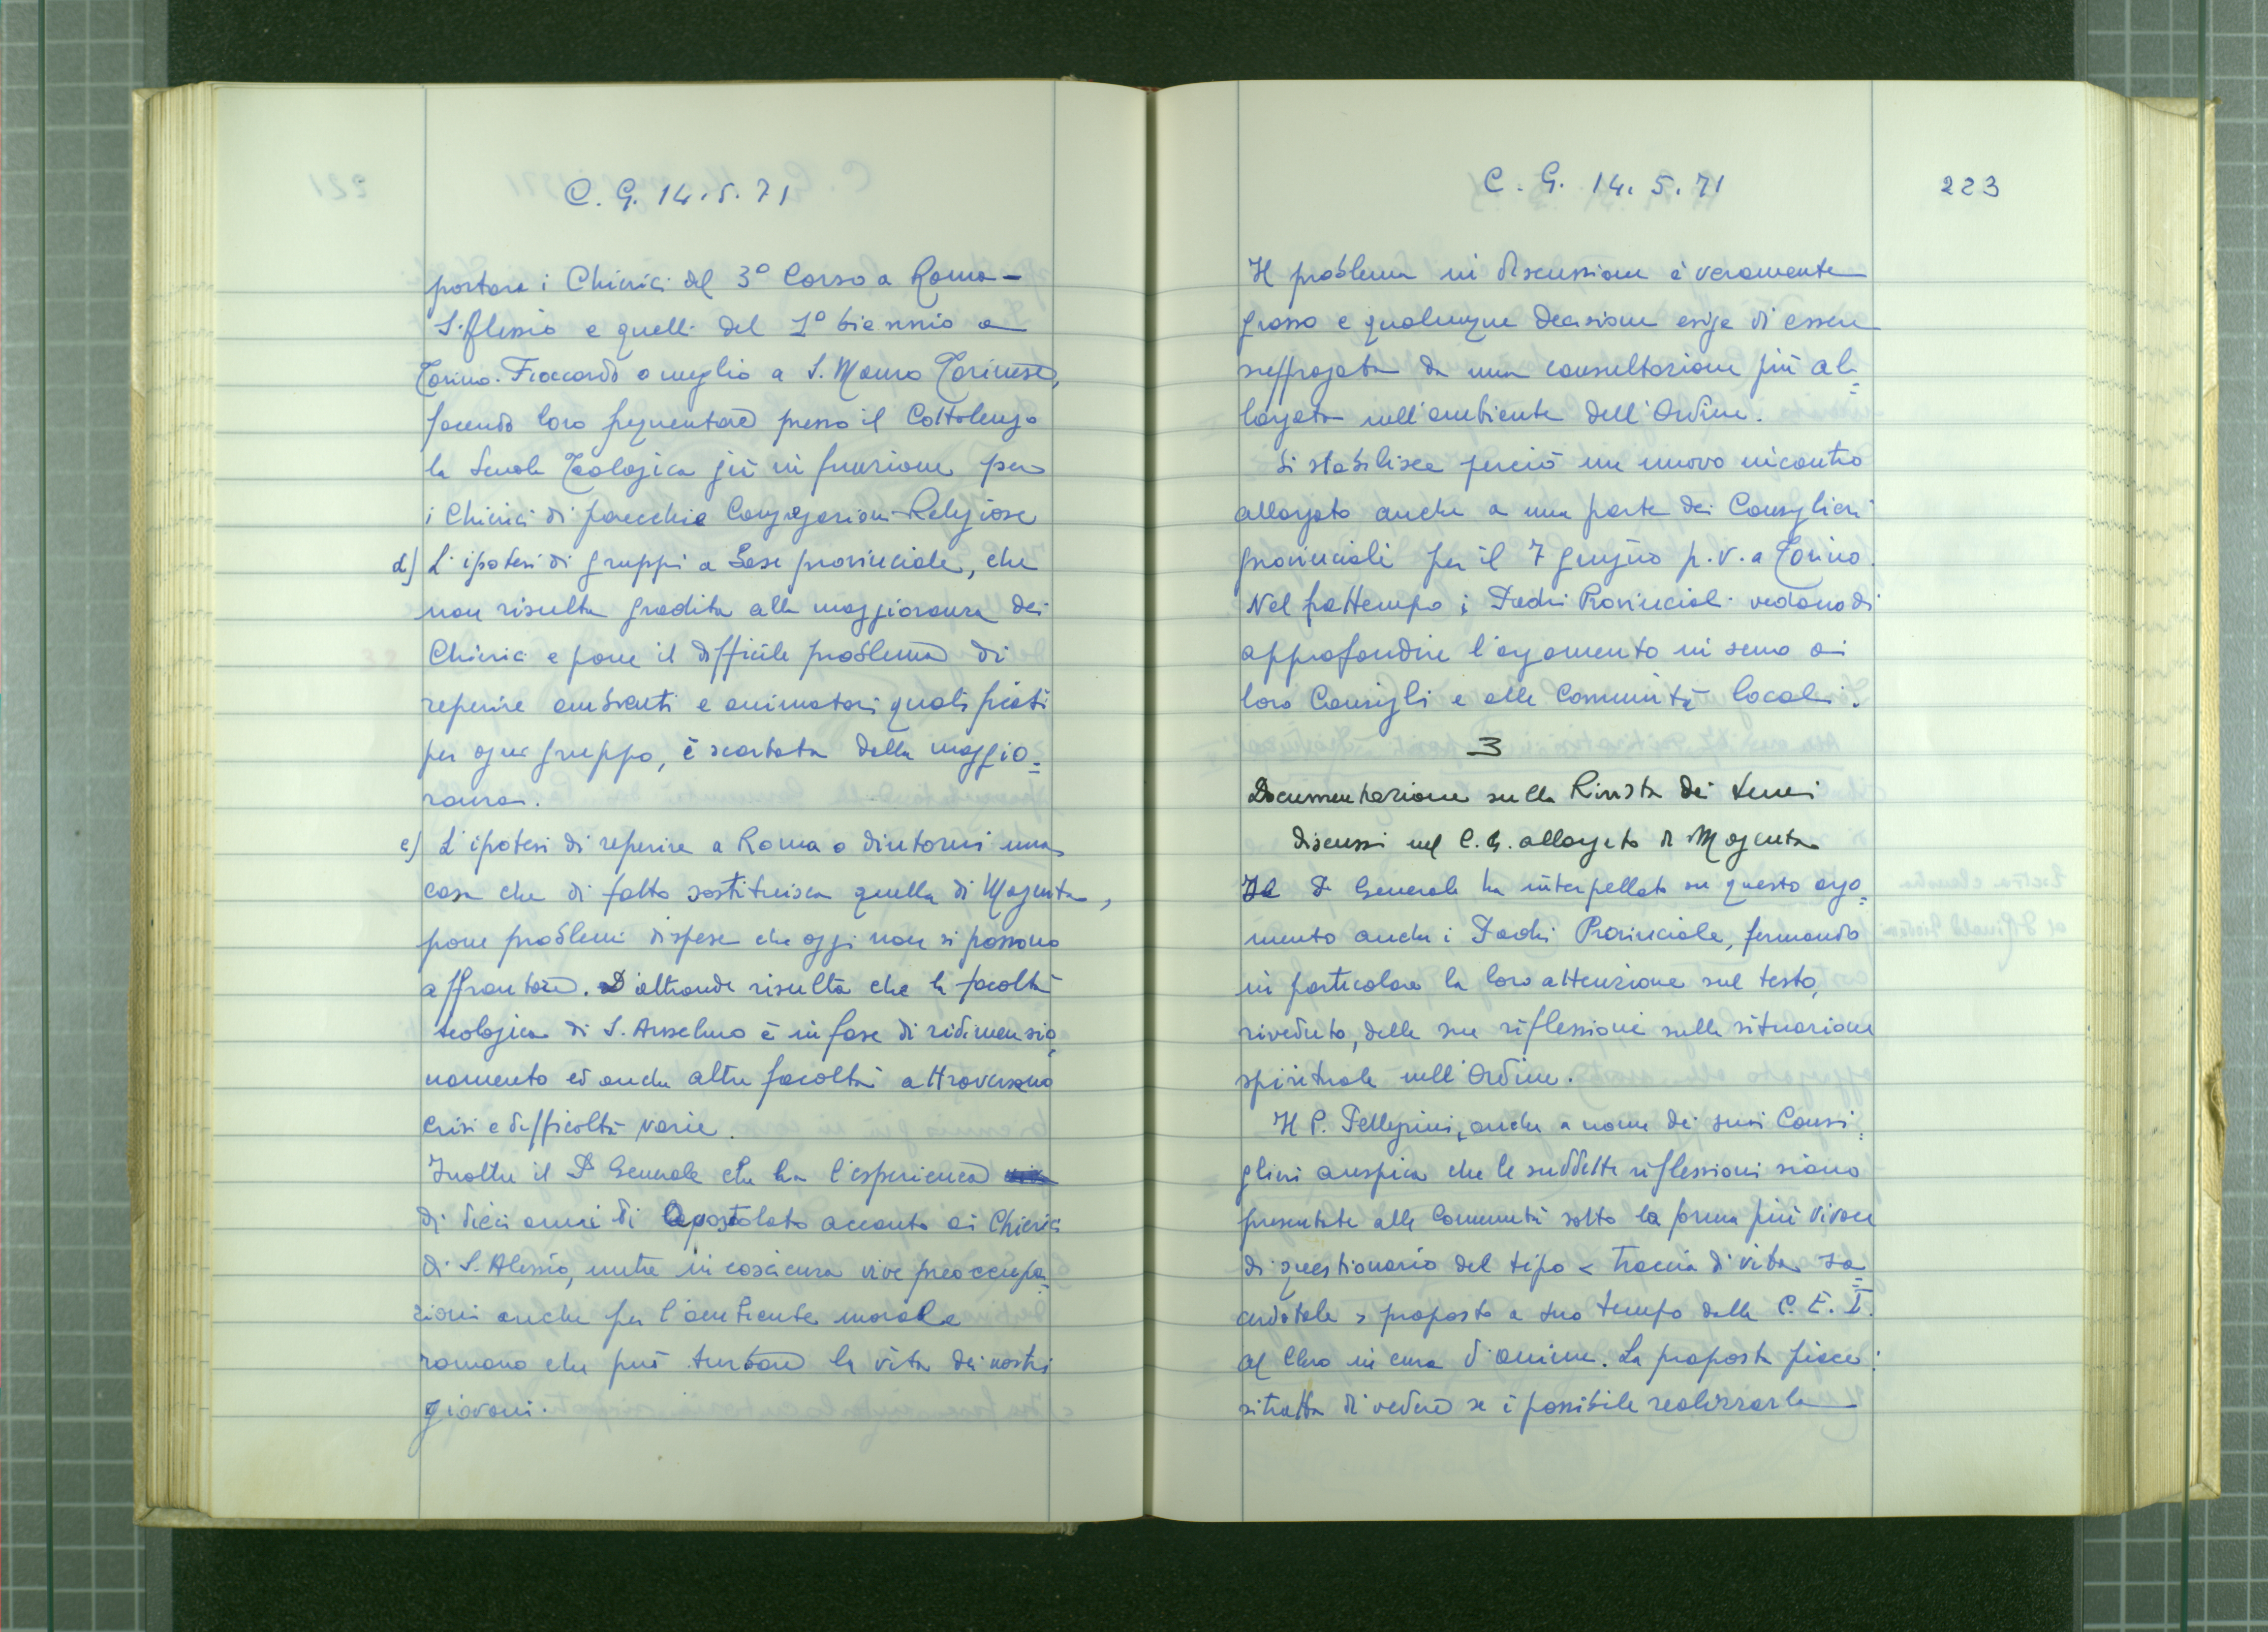 C. G. 14.5.71
portare i Chierici del 3° Corso a Roma-
S. Alessio e quelli del 1° biennio a
Torino-Fioccardo o meglio a S. Mauro Torinese,
facendo loro frequentare presso il Cottolengo
la Scuola Teologica già in funzione per
i Chierici di parecchie Congregazioni Religiose
d) L'ipotesi di gruppi a base provinciale, che
non risulta gradita alla maggioranza dei
Chierici e pone il difficile problema di
reperire ambienti e animatori qualificati
per ogni gruppo, è scartata dalla maggio=
ranza.
e) L'ipotesi di reperire a Roma o dintorni una
casa che di fatto sostituisca quella di Magenta,
pone problemi di spese che oggi non si possono
affrontare. D'altronde risulta che la facoltà
teologica di S. Anselmo è in fase di ridimensio=
namento ed anche altre facoltà attraversano
crisi e difficoltà varie.
Inoltre il P. Generale che ha l'esperienza
di dieci anni di Apostolato accanto ai Chierici
di S. Alessio, nutre in coscienza vive preoccupa=
zioni anche per l'ambiente morale
romano che può turbare la vita dei nostri
giovani.
C. G. 14. 5. 71
223
Il problema in discussione è veramente
grosso e qualunque decisione esige di essere
suffragata da una consultazione più al=
largata nell'ambiente dell'Ordine.
Si stabilisce perciò un nuovo incontro
allargato anche a una parte dei Consiglieri
provinciali per il 7 giugno p.v. a Torino.
Nel frattempo i Padri Provinciali vedano di
approfondire l'argomento in seno ai
loro Consigli e alle Comunità locali.
3
Documentazione sulla Rivista dei temi
discussi nel C.G. allargato di Magenta
Il P. Generale ha interpellato su questo argo=
mento anche i Padri Provinciale, fermando
in particolare la loro attenzione sul testo,
riveduto, delle sue riflessioni sulla situazione
spirituale nell'Ordine.
Il P. Pellegrini, anche a nome dei suoi Consi=
glieri auspica che le suddette riflessioni siano
presentate alle Comunità sotto la forma più vivace
di questionario del tipo < Traccia di vita sa=
cerdotale > proposto a suo tempo dalla C. E. I.
al Clero in cura d'anime. La proposta piace:
si tratta di vedere se è possibile realizzarla -